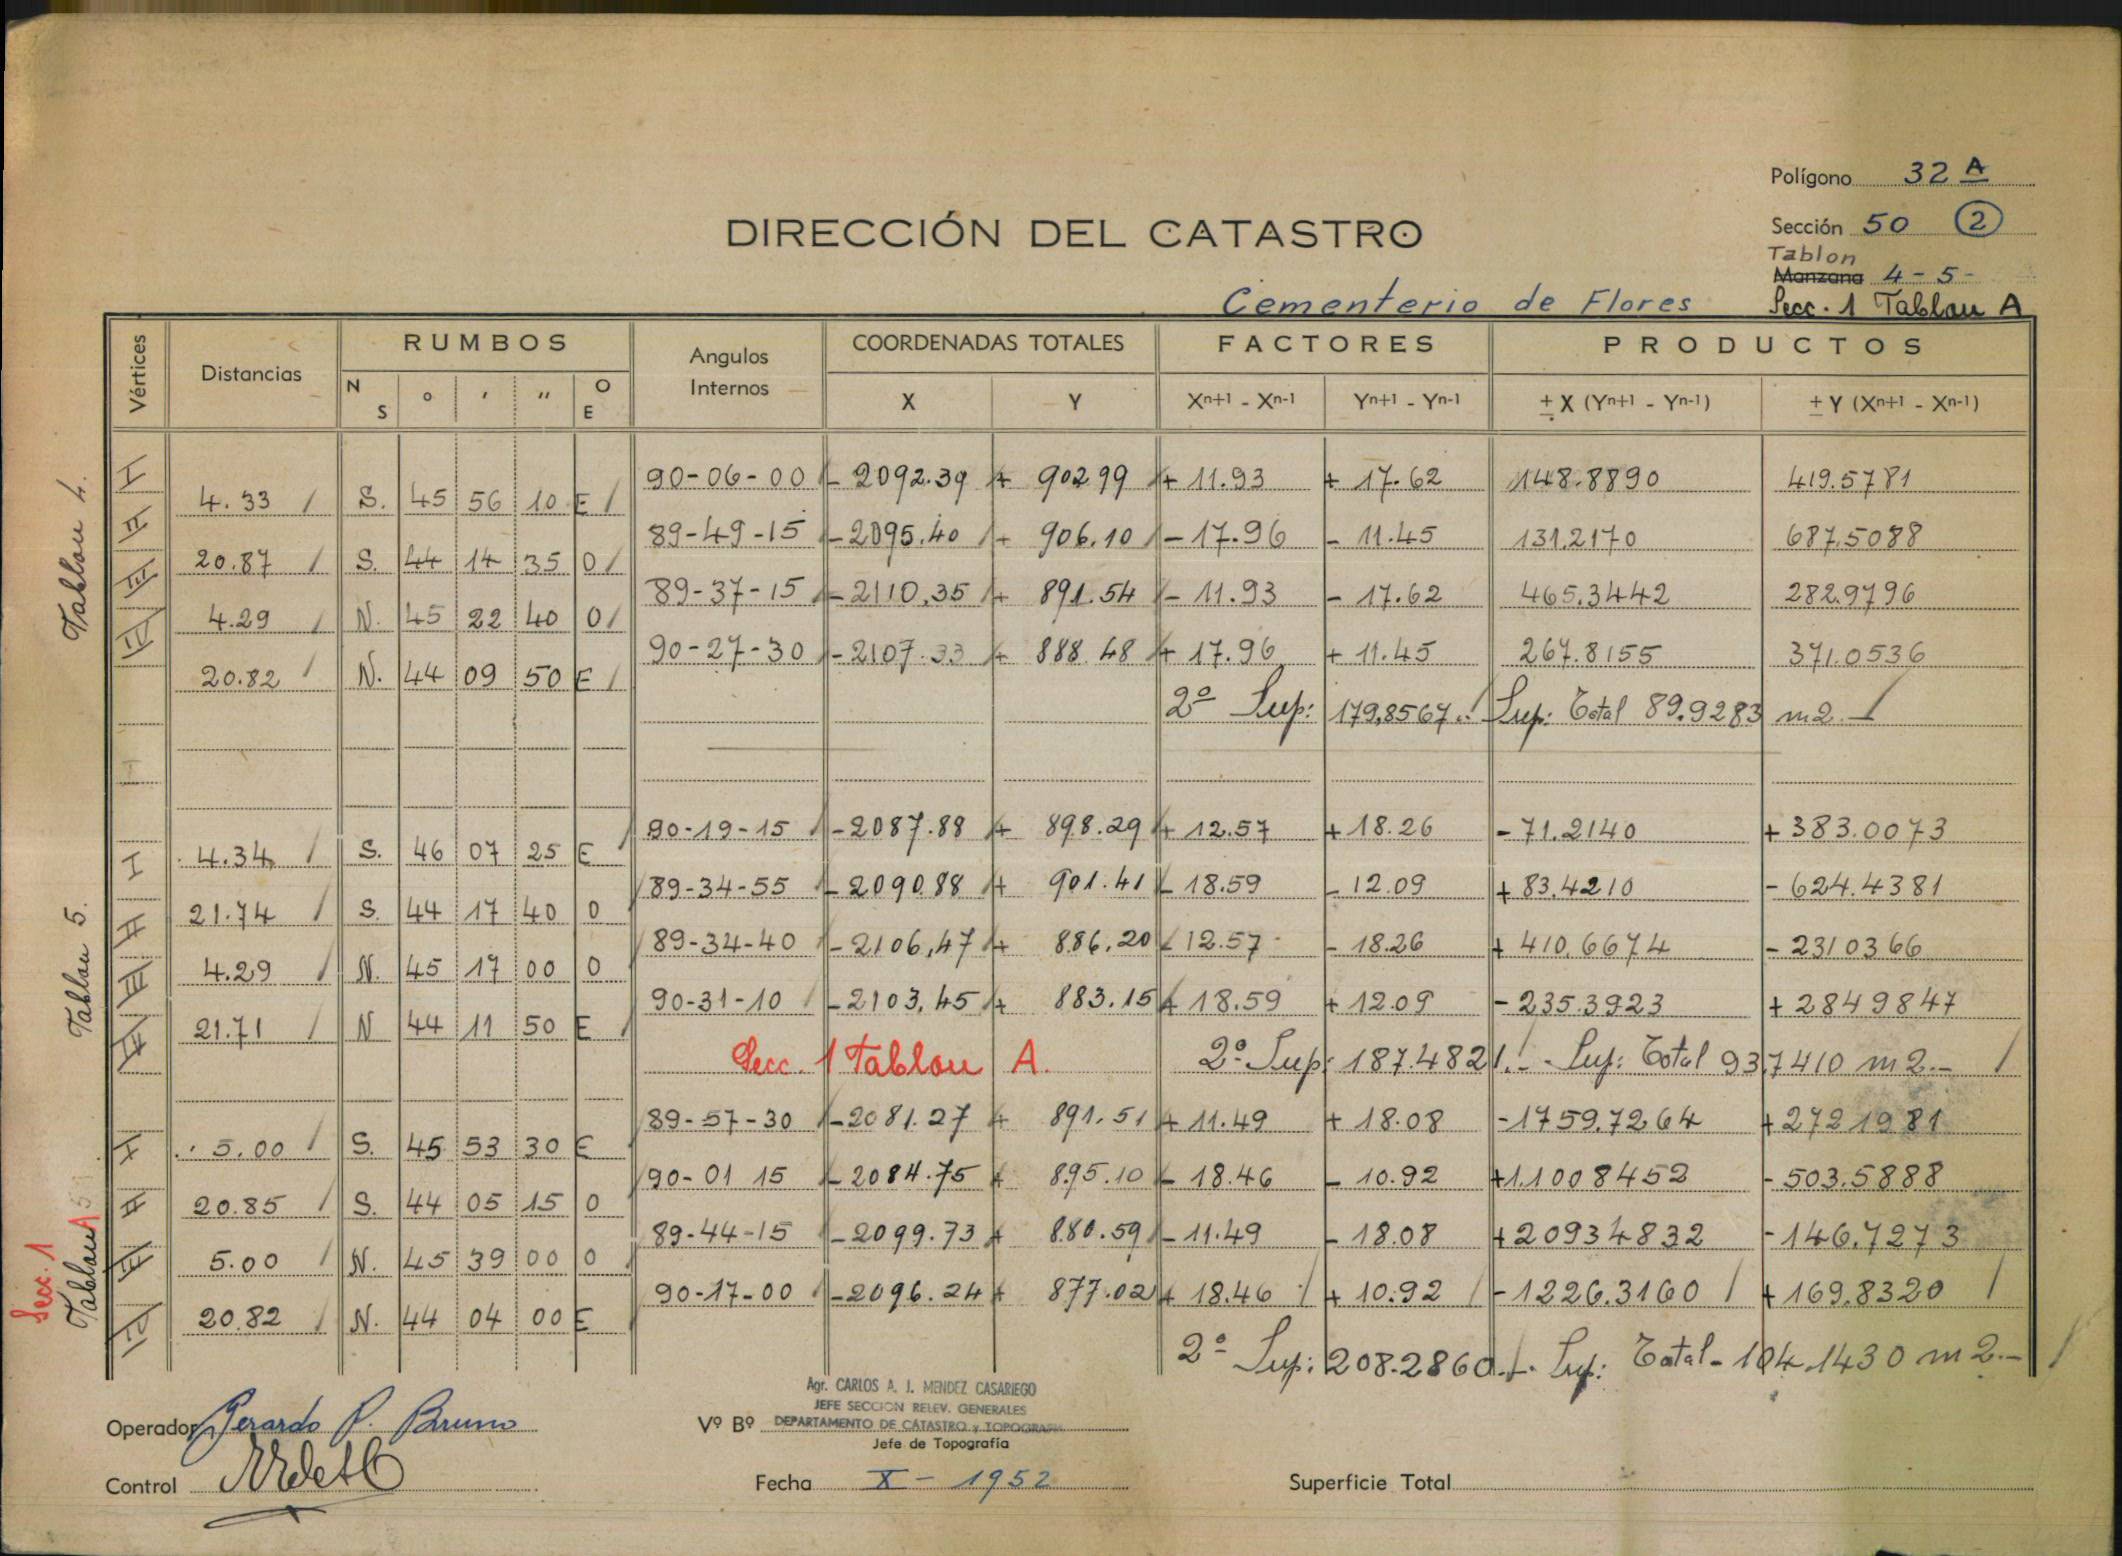 Polígono 32 A
DIRECCIÓN DEL CATASTRO
Sección 50 2
Tablon
Manzana 4-5-
Cementerio de Flores
Secc. 1 Tablon A
Vértices Distancias RUMBOS Angulos Internos COORDENADAS TOTALES FACTORES PRODUCTOS
N S ° ' " O E X Y Xn+1 - Xn-1 Yn+1 - Yn-1 ± X (Yn+1 - Yn-1) ± Y (Xn+1 - Xn-1)
Tablon 4.
I 90-06-00 - 2092.39 + 902.99 + 11.93 + 17.62 148.8890 419.5781
4.33 S. 45 56 10 E
II 89-49-15 - 2095.40 + 906.10 - 17.96 - 11.45 131.2170 687.5088
20.87 S. 44 14 35 O
III 89-37-15 - 2110.35 + 891.54 - 11.93 - 17.62 465.3442 282.9796
4.29 N. 45 22 40 O
IV 90-27-30 - 2107.33 + 888.48 + 17.96 + 11.45 267.8155 371.0536
20.82 N. 44 09 50 E
2ª Sup: 179,8567.- Sup: Total 89.9283 m2.-
Tablon 5.
90-19-15 - 2087.88 + 898.29 + 12.57 + 18.26 - 71.2140 + 383.0073
I 4.34 S. 46 07 25 E
89-34-55 - 2090.88 + 901.41 - 18.59 - 12.09 + 83.4210 - 624.4381
II 21.74 S. 44 17 40 O
89-34-40 - 2106,47 + 886,20 - 12.57 - 18.26 + 410,6674 - 2310366
III 4.29 N. 45 17 00 O
90-31-10 - 2103,45 + 883.15 + 18.59 + 12.09 - 235.3923 + 2849847
IV 21.71 N 44 11 50 E
Secc. 1 Tablon A. 2ª Sup: 187.4821.- Sup: Total 93,7410 m2.-
Secc. 1
Tablon A
89-57-30 - 2081.27 + 891.51 + 11.49 + 18.08 - 1759.7264 + 2721981
I 5.00 S. 45 53 30 E
90-01 15 - 2084.75 + 895.10 - 18.46 - 10.92 + 1.1008452 - 503.5888
II 20.85 S. 44 05 15 O
89-44-15 - 2099.73 + 880.59 - 11.49 - 18.08 + 20934832 - 146.7273
III 5.00 N. 45 39 00 O
90-17-00 - 2096.24 + 877.02 + 18.46 + 10.92 - 1226.3160 + 169.8320
IV 20.82 N. 44 04 00 E
2ª Sup: 208.2860.- Sup: Total - 104.1430 m2.-
Agr. CARLOS A. J. MENDEZ CASARIEGO
JEFE SECCION RELEV. GENERALES
Operador Gerardo P. Bruno Vº Bº DEPARTAMENTO DE CATASTRO y TOPOGRAFIA
Jefe de Topografía
Control Fecha X - 1952 Superficie Total